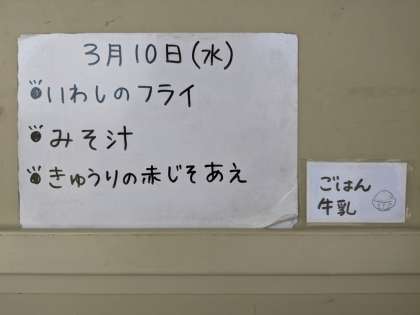 3月10日(水)
いわしのフライ
みそ汁
きゅうりの赤じそあえ
ごはん
牛乳